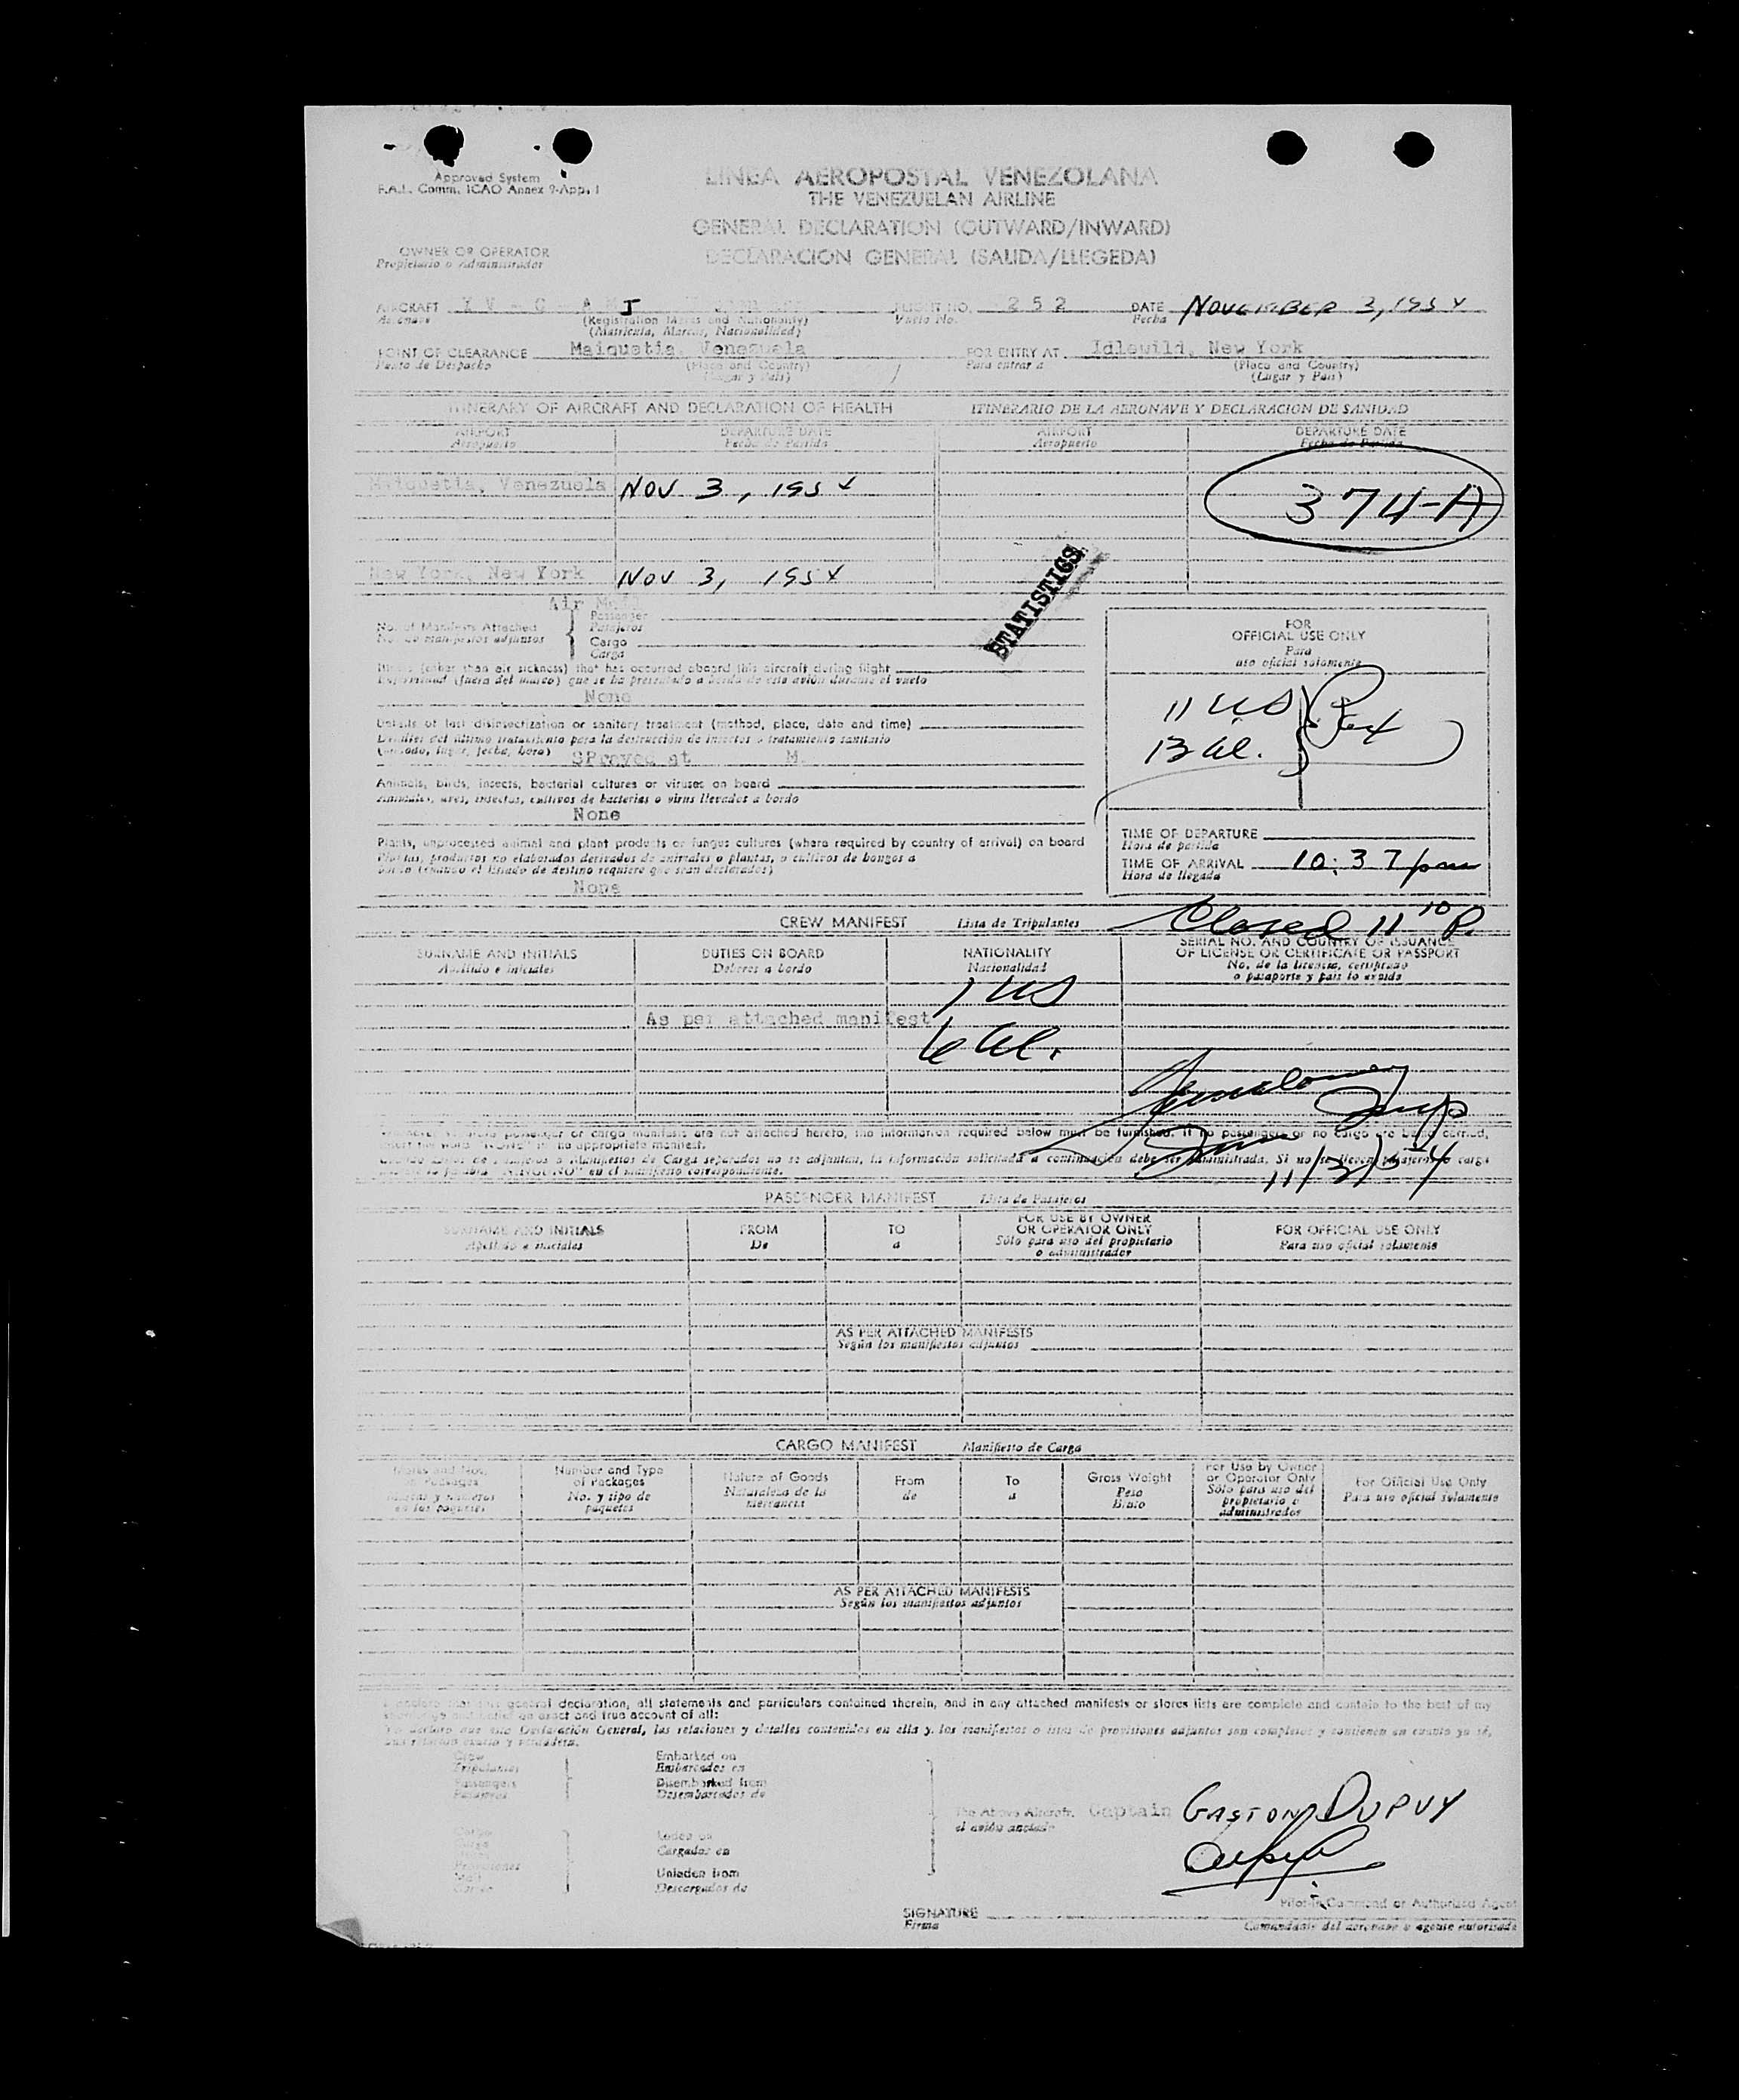 Approved System
F.A.L. Comm. ICAO Annex 9-App. 1
LINEA AEROPOSTAL VENEZOLANA
THE VENEZUELAN AIRLINE
GENERAL DECLARATION (OUTWARD/INWARD)
DECLARACION GENERAL (SALIDA/LLEGEDA)
OWNER OR OPERATOR
Propietario o Administrador
AIRCRAFT Y V - C - A M J FLIGHT NO. 252 DATE NOVEMBER 3, 1954
Aeronave (Registration Marks and Nationality) Vuelo No. Fecha
(Matricula, Marcas, Nacionalidad)
POINT OF CLEARANCE Maiquetia, Venezuela FOR ENTRY AT Idlewild, New York
Punto de Despacho (Place and Country) Para entrar a (Place and Country)
(Lugar y Pais) (Lugar y Pais)
ITINERARY OF AIRCRAFT AND DECLARATION OF HEALTH ITINERARIO DE LA AERONAVE Y DECLARACION DE SANIDAD
AIRPORT DEPARTURE DATE AIRPORT DEPARTURE DATE
Aeropuerto Fecha de Partida Aeropuerto Fecha de Partida
Maiquetia, Venezuela NOV 3, 1954
374-A
New York, New York NOV 3, 1954
STATISTICS
Air
No. of Manifests Attached Passenger
No. de manifiestos adjuntos Pasajeros
Cargo
Carga
Illness (other than air sickness) that has occurred aboard this aircraft during flight
Enfermedad (fuera del mareo) que se ha presentado a bordo de este avión durante el vuelo
None
Details of last disinsectization or sanitary treatment (method, place, date and time)
Detalles del último tratamiento para la destrucción de insectos o tratamiento sanitario
(método, lugar, fecha, hora) SPrayed at M.
Animals, birds, insects, bacterial cultures or viruses on board
Animales, aves, insectos, cultivos de bacterias o virus llevados a bordo
None
Plants, unprocessed animal and plant products or fungus cultures (where required by country of arrival) on board
Plantas, productos no elaborados derivados de animales o plantas, o cultivos de hongos a
bordo (cuando el Estado de destino requiere que sean declarados)
None
FOR
OFFICIAL USE ONLY
Para
uso oficial solamente
11 US
13 al.
TIME OF DEPARTURE
Hora de partida
TIME OF ARRIVAL 10:37 pm
Hora de llegada
Closed 11 10 P.
CREW MANIFEST Lista de Tripulantes
SURNAME AND INITIALS DUTIES ON BOARD NATIONALITY SERIAL NO. AND COUNTRY OF ISSUANCE
Apellido e iniciales Deberes a bordo Nacionalidad OF LICENSE OR CERTIFICATE OR PASSPORT
No. de la licencia, certificado
o pasaporte y pais lo expide
1 US
As per attached manifest
6 al.
passenger or cargo manifests are not attached hereto, the information required below must be furnished. If no passengers or no cargo are being carried,
insert the word "NONE" in appropriate manifest.
Manifiestos de Carga separados no se adjuntan, la información solicitada a continuación debe ser suministrada. Si no se llevan pasajeros o carga
en el manifiesto correspondiente.
11/3/54
PASSENGER MANIFEST Lista de Pasajeros
SURNAME AND INITIALS FROM TO FOR USE BY OWNER FOR OFFICIAL USE ONLY
Apellido e iniciales De a OR OPERATOR ONLY Para uso oficial solamente
Sólo para uso del propietario
o administrador
AS PER ATTACHED MANIFESTS
Según los manifiestos adjuntos
CARGO MANIFEST Manifiesto de Carga
Marks and Nos. on Packages Number and Type of Packages Nature of Goods From To Gross Weight For Use by Owner or Operator Only For Official Use Only
Marcas y números en los paquetes No. y tipo de paquetes Naturaleza de la Mercancia de a Peso Bruto Sólo para uso del propietario o administrador Para uso oficial solamente
AS PER ATTACHED MANIFESTS
Según los manifiestos adjuntos
general declaration, all statements and particulars contained therein, and in any attached manifests or stores lists are complete and contain to the best of my
knowledge and belief an exact and true account of all:
Declaración General, las relaciones y detalles contenidos en ella y los manifiestos o listas de provisiones adjuntos son completos y contienen en cuanto yo sé,
una relación exacta y verdadera.
Crew Embarked on
Tripulantes Embarcados en
Passengers Disembarked from
Pasajeros Desembarcados de
The Above Aircraft. Captain GASTON DUPUY
el avión anotado
Cargo Laden on
Carga Cargados en
Provisiones
Mail Unladen from
Correo Descargados de
Pilot-in-Command or Authorized Agent
SIGNATURE
Firma Comandante del aeronave o agente autorizado